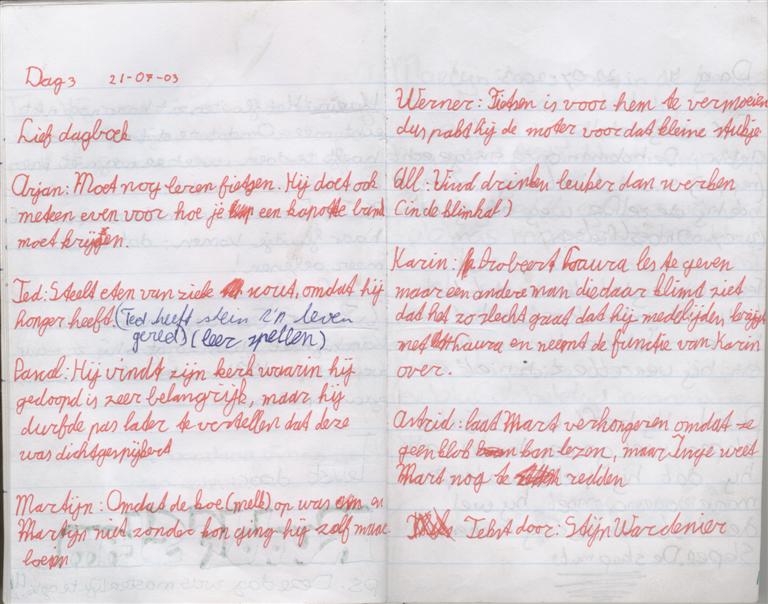 Dag 3 21-07-03
Lief dagboek
Arjan: Moet nog leren fietsen. Hij doet ook
meteen even voor hoe je een kapotte band
moet krijgen.
Ted: Steelt eten van zieke nout, omdat hij
honger heeft. (Ted heeft stein z'n leven
gered) (leer spellen)
Pascal: Hij vindt zijn kerk waarin hij
gedoopt is zeer belangrijk, maar hij
durfde pas later te vertellen dat deze
was dichtgespijkert
Martijn: Omdat de koe (melk) op was en
Martijn niet zonder kon ging hij zelf maar
loeien
Werner: Fietsen is voor hem te vermoeien
dus pakt hij de moter voor dat kleine stukje
All: Vind drinken leuker dan werken
(in de klimhal)
Karin: Probeert Laura les te geven
maar een andere man die daar klimt ziet
dat het zo slecht gaat dat hij medelijden krijgt
met Laura en neemt de functie van Karin
over.
Astrid: laat Mart verhongeren omdat ze
geen klok kan lezen, maar Inge weet
Mart nog te redden
Tekst door: Stijn Wardenier